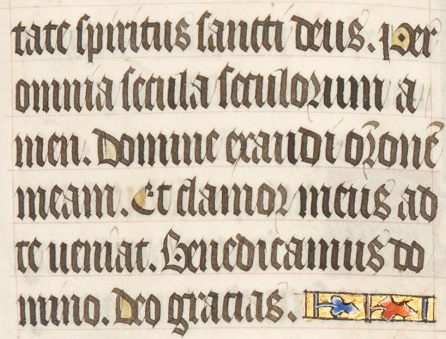 tate spiritus sancti deus. Per
omnia secula seculorum a
men. Domine exaudi or̄onē
meam. Et clamor meus ad
te ueniat. Benedicamus do
mino. Deo gracias.